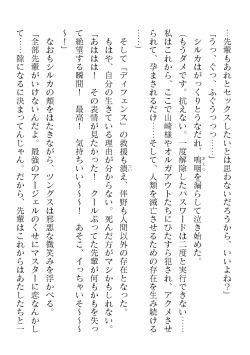 …先輩もあれとセックスしたいとは思わないだろうから、いいよね?」
「うっ、ぐっ、ふぐうっつつ……」
シルカはがっくりとうなだれ、嗚咽を漏らして泣き始めた。
(もうダメです。抗えない。一度解除したパスワードは二度と実行できない……
私はこれから、ここで山崎様やオルガアウトたちにひたすら犯され、アクメさせ
られて、孕まされるだけ……。そして、人類を滅亡させるための存在を生み続ける
……)
そして「ディフェンス」の救援も潰え、伴野も人間以外の存在となった。
もはや、自分の生きている理由が分からない。死んだ方がマシかもしれない。
「あははは! その表情が見たかった! クールぶってた先輩が何もかもを失っ
て絶望する瞬間! 最高! 気持ちいい〜〜〜! あそこ、イっちゃいそ〜〜〜
〜!」
なおもシルカの頬をはたきながら、ツングスは邪悪な微笑みを浮かべる。
「全部先輩がいけないんだよ。最強のアージェルのくせにマスターに恋なんかし
て……隙になるに決まってんじゃん。だから、先輩はこれからはあたしたちと一